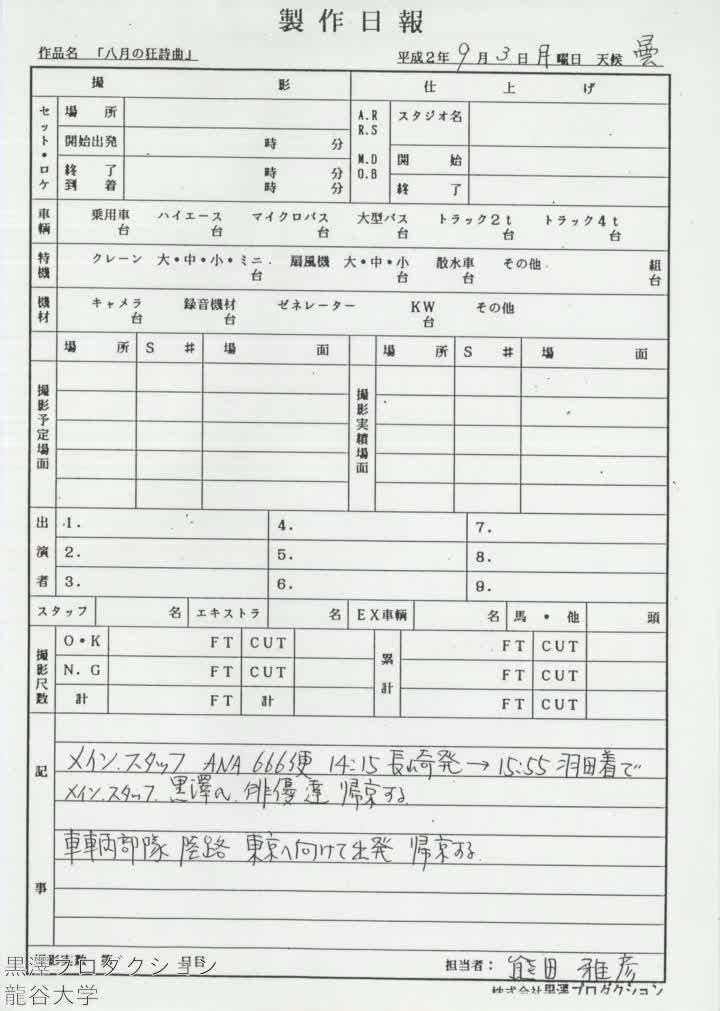 製作日報
作品名 「八月の狂詩曲」 平成2年 9月 3日 月曜日 天候 曇
撮影 仕上げ
セット・ロケ 場所 A.R R.S スタジオ名
開始出発 時 分
終了 時 分 M.D O.B 開始
到着 時 分 終了
車輌 乗用車 ハイエース マイクロバス 大型バス トラック2t トラック4t
台 台 台 台 台 台
特機 クレーン 大・中・小・ミニ 扇風機 大・中・小 散水車 その他 組
台 台 台 台
機材 キャメラ 録音機材 ゼネレーター KW その他
台 台 台
場所 S # 場面 場所 S # 場面
撮影予定場面 撮影実績場面
出演者 1. 4. 7.
2. 5. 8.
3. 6. 9.
スタッフ 名 エキストラ 名 EX車輌 名 馬・他 頭
撮影尺数 O・K FT CUT 累計 FT CUT
N.G FT CUT FT CUT
計 FT 計 FT CUT
記事
メイン.スタッフ ANA 666便 14:15 長崎発→15:55 羽田着で
メイン.スタッフ. 黒澤 俳優達 帰京する.
車輌部隊 陸路 東京へ向けて出発 帰京する.
担当者: 熊田 雅彦
株式会社黒澤プロダクション
黒澤プロダクション
龍谷大学